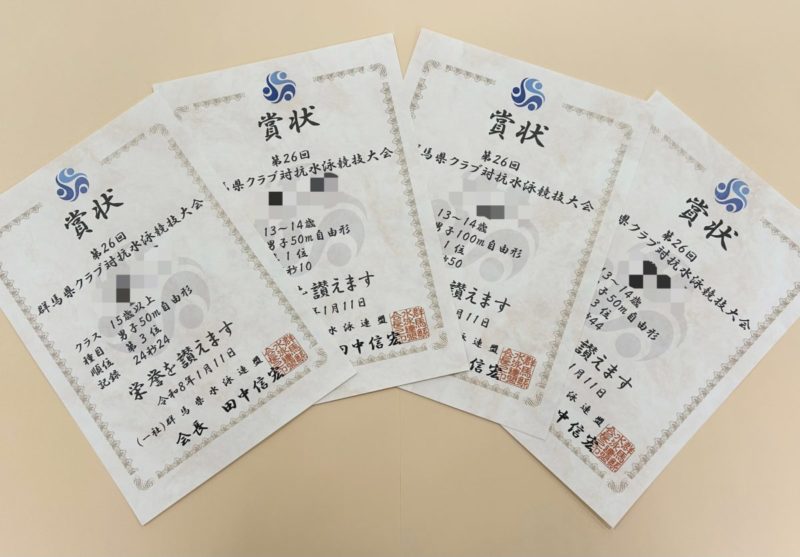 賞状
第26回
群馬県クラブ対抗水泳競技大会
クラス 15歳以上
種目 男子50m自由形
順位 第3位
記録 24秒24
栄誉を讃えます
令和8年1月11日
(一社)群馬県水泳連盟
会長 田中信宏
賞状
第26回
県クラブ対抗水泳競技大会
13〜14歳
男子50m自由形
1位
秒10
讃えます
1月11日
水泳連盟
田中信宏
賞状
第26回
県クラブ対抗水泳競技大会
13〜14歳
男子100m自由形
1位
50
讃えます
月11日
水泳連盟
中信宏
賞状
第26回
県クラブ対抗水泳競技大会
3〜14歳
男子50m自由形
3位
44
讃えます
1月11日
泳連盟
中信宏